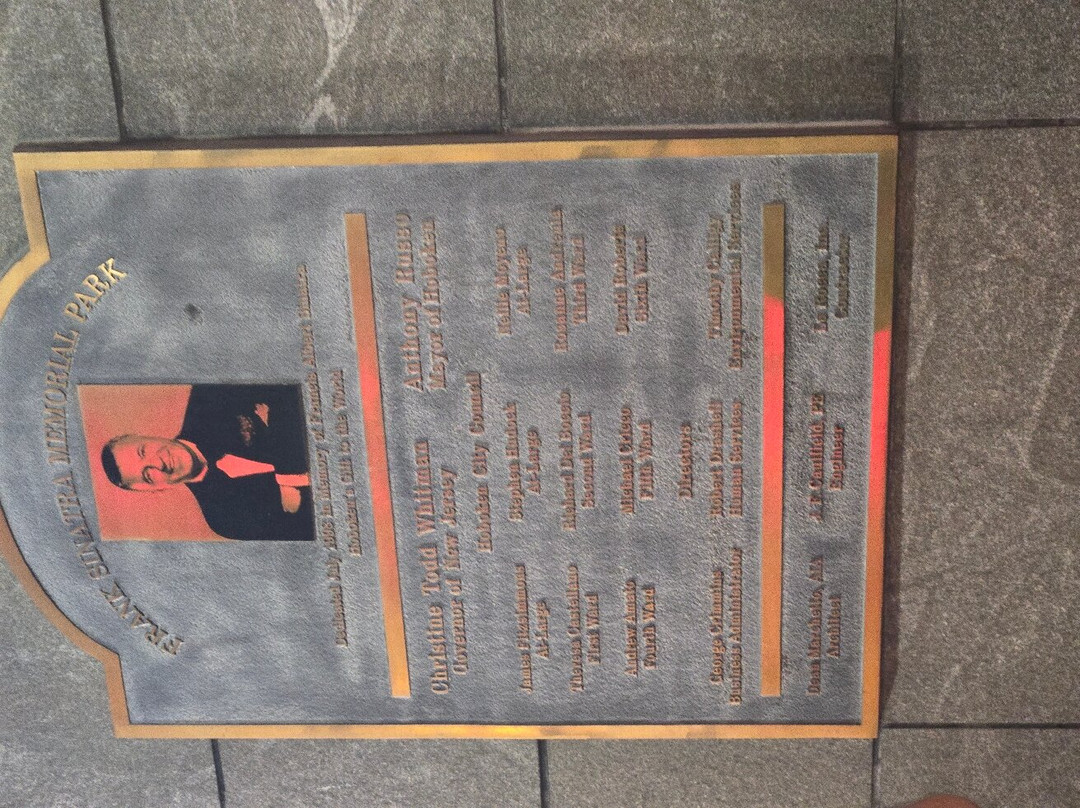 FRANK SINATRA MEMORIAL PARK
Dedicated July, 1998 in Memory of Francis Albert Sinatra
Hoboken's Gift to the World
Christine Todd Whitman
Governor of New Jersey
Anthony Russo
Mayor of Hoboken
Hoboken City Council
James Fitzsimmons
At-Large
Stephen Hudock
At-Large
At-Large
Theresa Castellano
First Ward
Richard Del Boccio
Second Ward
Roseanne Andreula
Third Ward
Andrew Amato
Fourth Ward
Michael Cricco
Fifth Ward
David Roberts
Sixth Ward
Directors
George Crimmins
Business Administrator
Robert Drasheff
Human Services
Timothy Calligy
Environmental Services
Dean Marchetto, AIA
Architect
Caulfield PE
Engineer
Inc.
Contractor